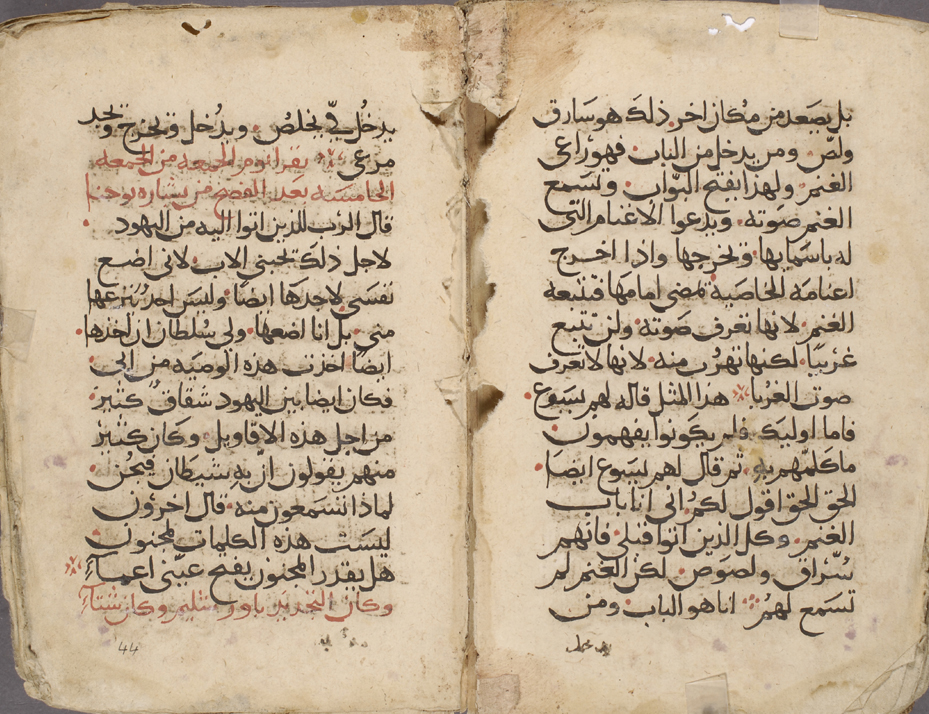 بل يصعد من مكان اخر ذلك هو سارق
ولص ومن يدخل من الباب فهو راعي
الغنم ولهذا يفتح البواب وتسمع
الغنم صوته ويدعوا الاغنام التي
له باسمايها ويخرجها واذا اخرج
اغنامه الخاصية تمضي امامها فتتبعه
الغنم لانها تعرف صوته ولن تتبع
غريبا لكنها تهرب منه لانها لا تعرف
صوت الغربا هذا المثل قاله لهم يسوع
فاما اوليك فلم يكونوا يفهمون
ما كلمهم به ثم قال لهم يسوع ايضا
الحق الحق اقول لكم اني انا باب
الغنم وكل الذين اتوا قبلي فانهم
سراق ولصوص لكن الغنم لم
تسمع لهم انا هو الباب ومن
يدخل في يخلص ويدخل ويخرج ويجد
مرعي يقرا يوم الجمعه من الجمعه
الخامسه بعد الفصح من بشاره يوحنا
قال الرب للذين اتوا اليه من اليهود
لاجل ذلك يحبني الاب لاني اضع
نفسي لاخذها ايضا وليس احد ينزعها
مني بل انا اضعها ولي سلطان ان اخذها
ايضا اخذت هذه الوصيه من ابي
فكان ايضا بين اليهود شقاق كثير
من اجل هذه الاقاويل وكان كثير
منهم يقولون ان به شيطان فجن
لماذا تسمعون منه قال اخرون
ليست هذه الكلمات لمجنون
هل يقدر المجنون يفتح عيني اعماء
وكان التجديد باورشليم وكان شتاء
44